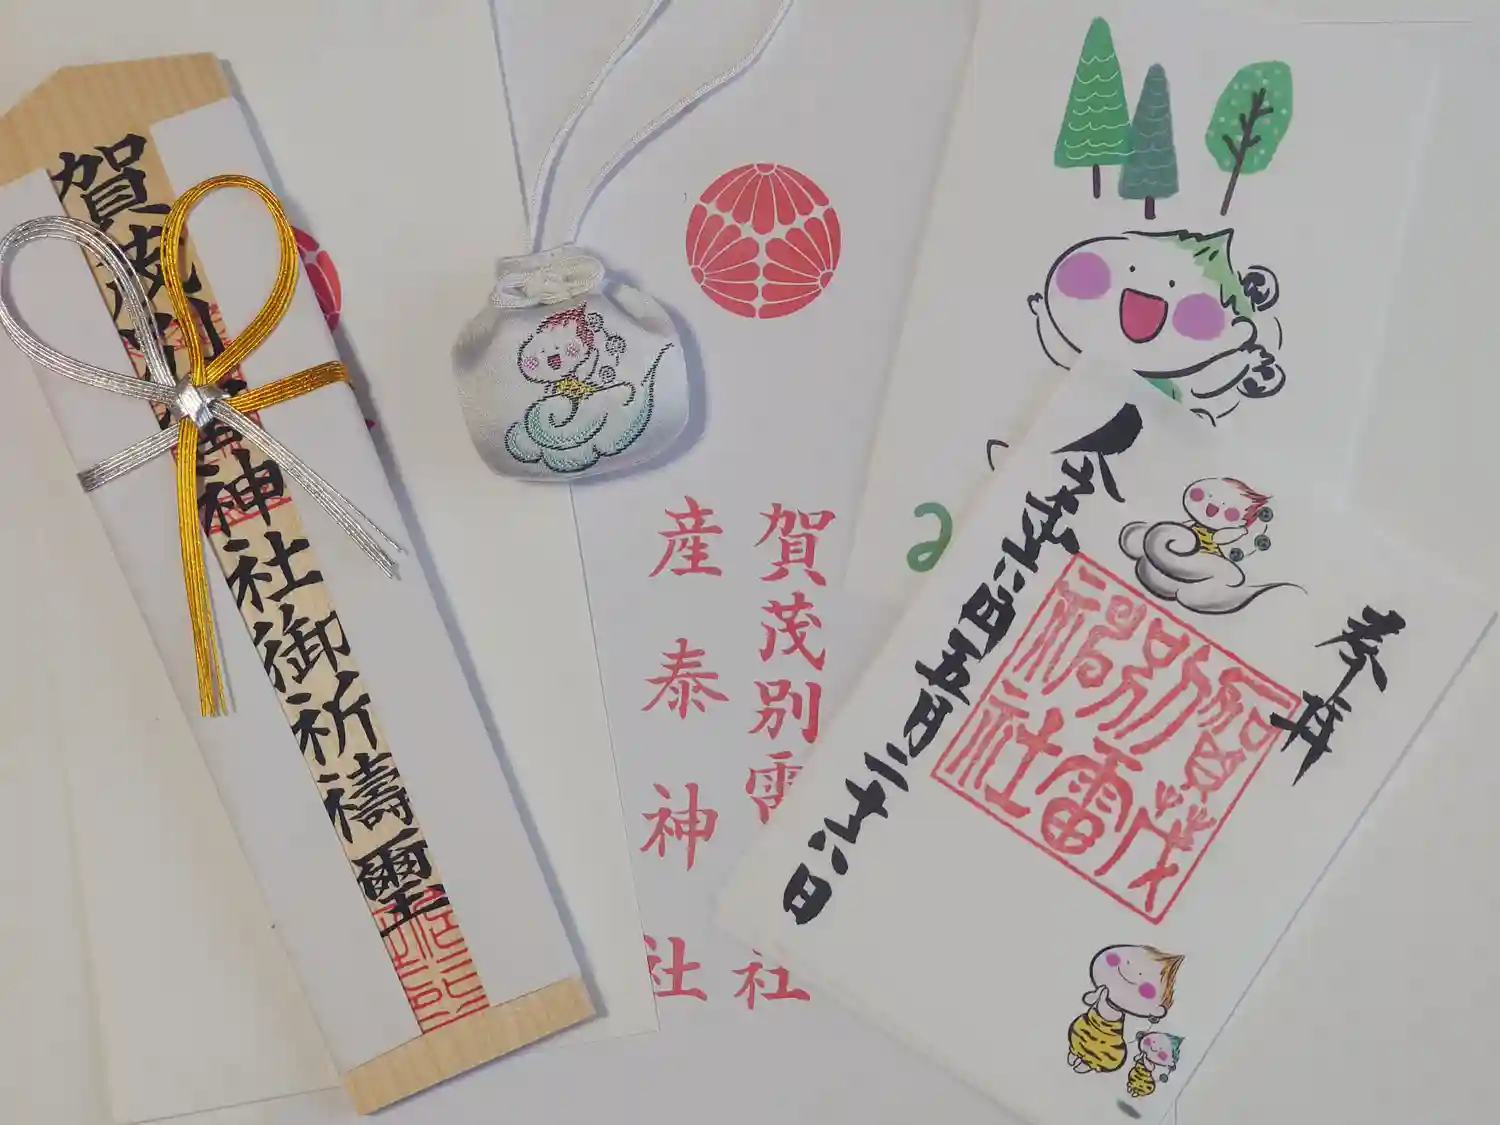 賀茂別雷神社御祈祷璽
賀茂別雷
社
産泰神社
奉拝
賀茂別雷神社
令和六年五月二十六日